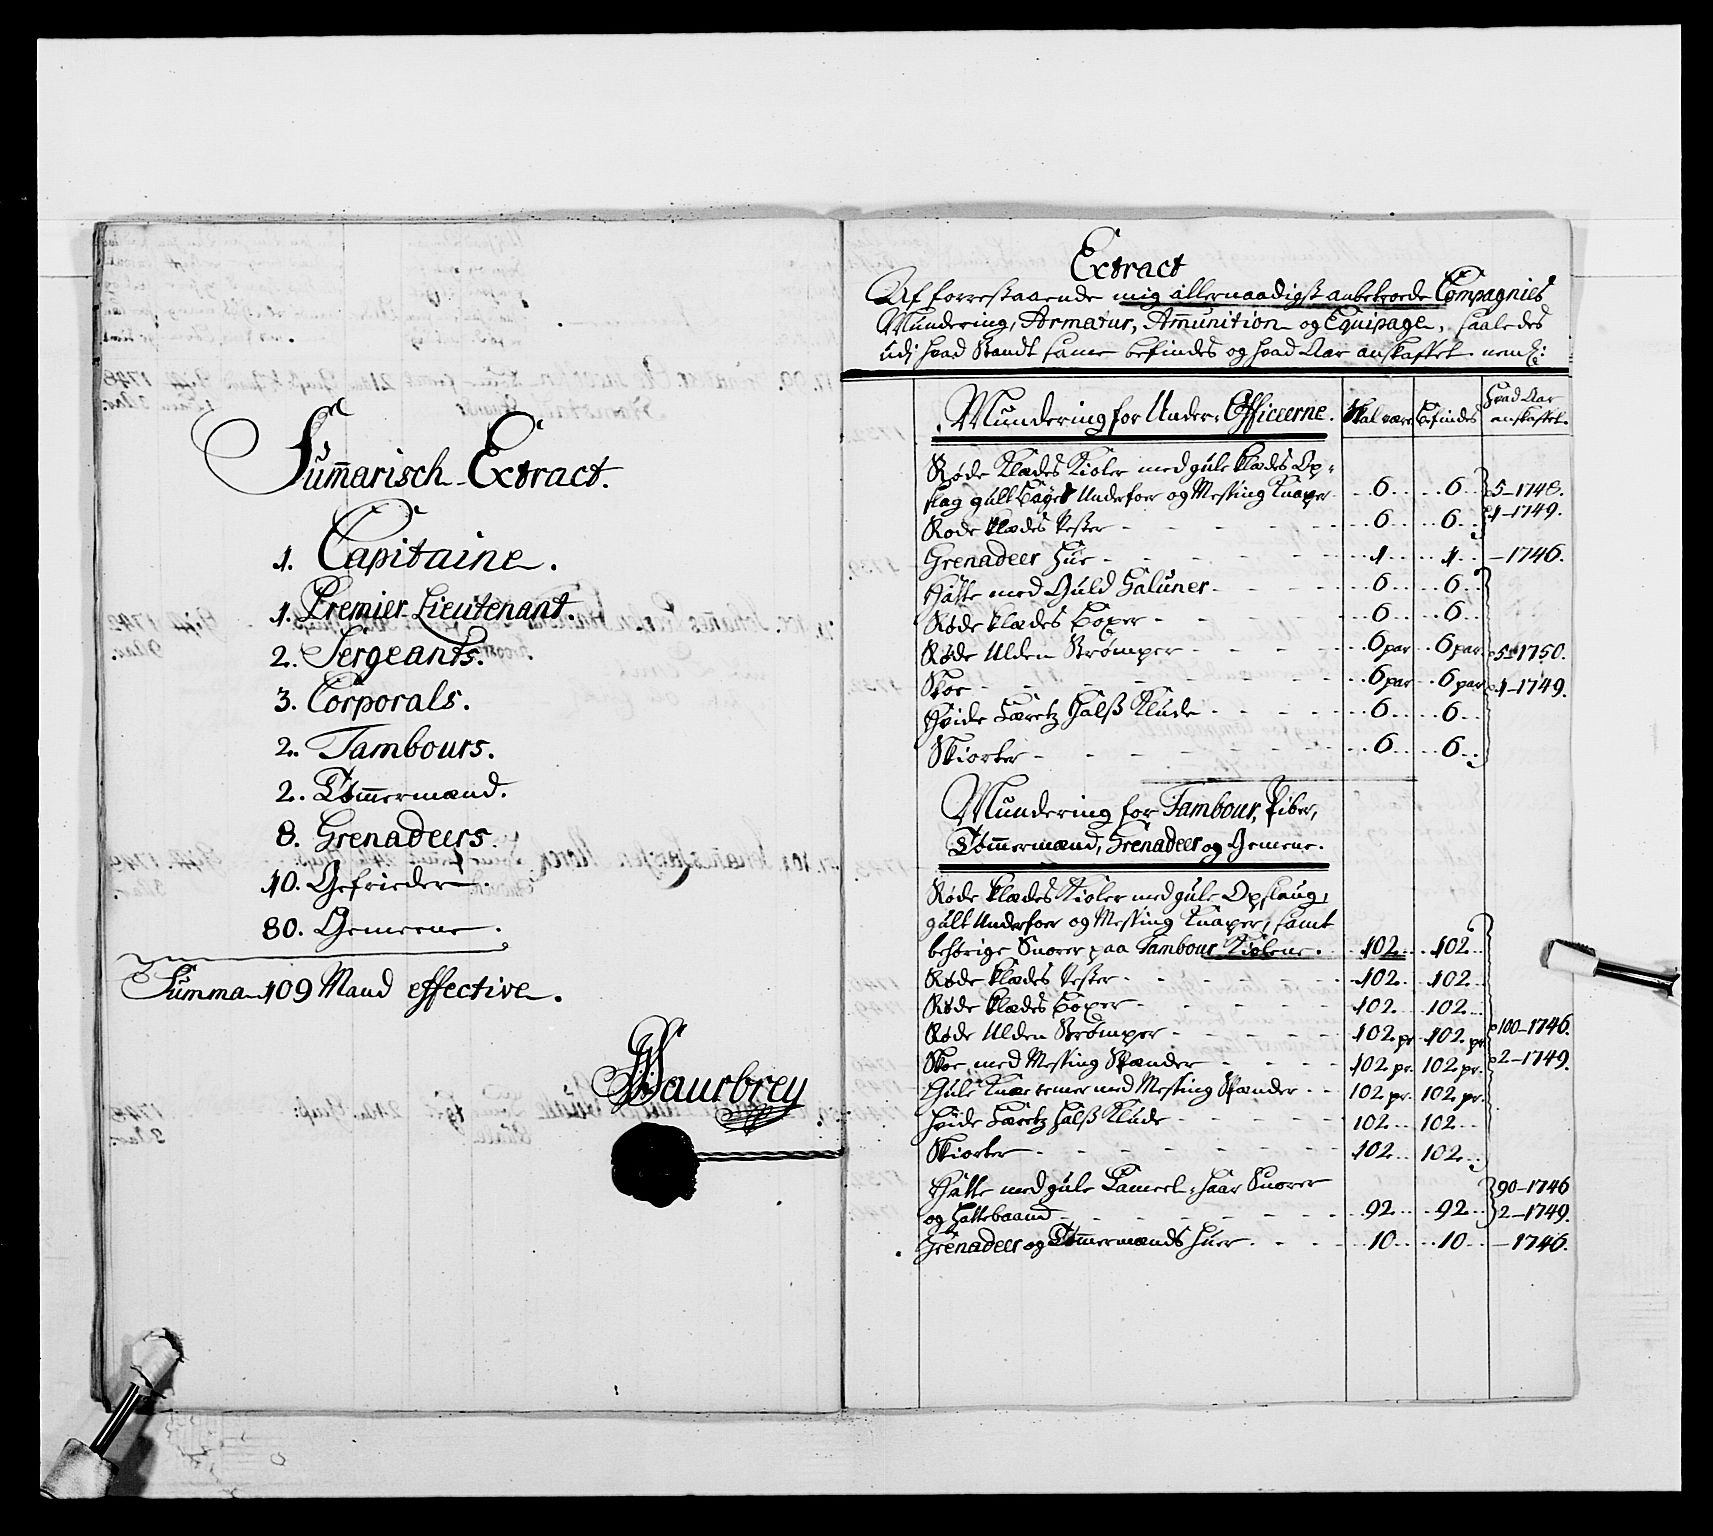 Summarisch Extract.
1. Capitaine.
1. Premier Lieutenant.
2. Sergeants.
3. Corporals.
2. Tambours.
2. Tømmermænd.
8. Grenadeers.
10. Gefrieder.
80. Gemeene.
Summa 109 Mand effective.
Extract
Af forrestaaende mig allernaadigst anbetroede Compagnies
Mundering, Armatur, Amunition og Equipage, saaledes
udj hvad Standt same befindes og hvad Aar anskaffet. neml:
Mundering for Under-Officeerne. Skal være Befindes Hvad Aar anskaffet.
Røde Klædes Kioler med gule Klædes Op-
slag gult Bayes Underfoer og Messing Knaper 6 6 5-1748.
Røde Klædes Vester 6 6 1-1749.
Grenadeer Hue 1 1 -1746.
Hatte med Guld Galuner 6 6
Røde Klædes Boxer 6 6
Røde Ulden Strømper 6 par 6 par 5-1750.
Skoe 6 par 6 par 1-1749.
Hvide Halß Klude 6 6
Skiorter 6 6
Mundering for Tambour, Piber,
Tømmermænd, Grenadeer og Gemene.
Røde Klædes Kioler med gule Opslaug,
gult Underfoer og Messing Knaper, samt
behörige Snorer paa Tambour Kiolene. 102 102
Røde Klædes Vester 102 102
Røde Klædes Boxer 102 102
Røde Ulden Strømper 102 pr 102 pr 100-1746.
Skoe med Messing Spænder 102 pr. 102 pr. 2-1749.
Gule Knæremer med Messing Spænder 102 pr. 102 pr.
Hvide Halß Klude 102 102
Skiorter 102 102
Hatte med gule Cameel-haar Snorer 90-1746
og Hattebaand 92 92 2-1749.
Grenadeer og Tømmermænds Huer 10 10 -1746.